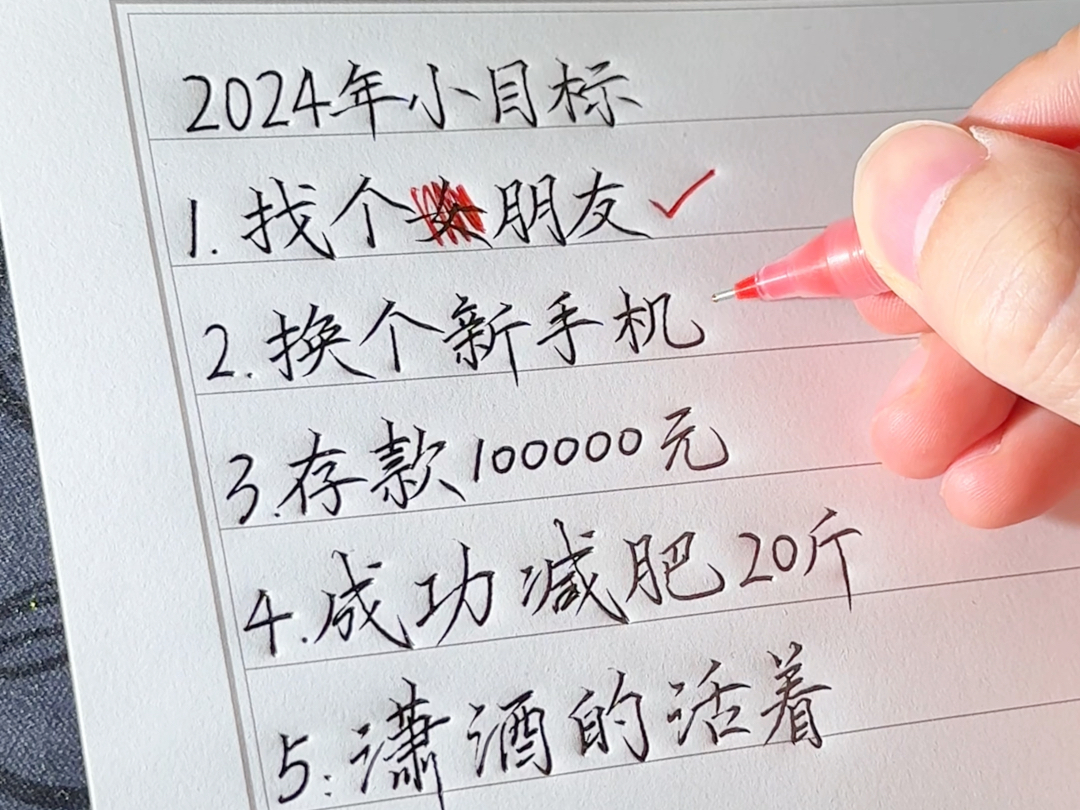 2024年小目标
1.找个女朋友✓
2.换个新手机
3.存款100000元
4.成功减肥20斤
5.潇洒的活着